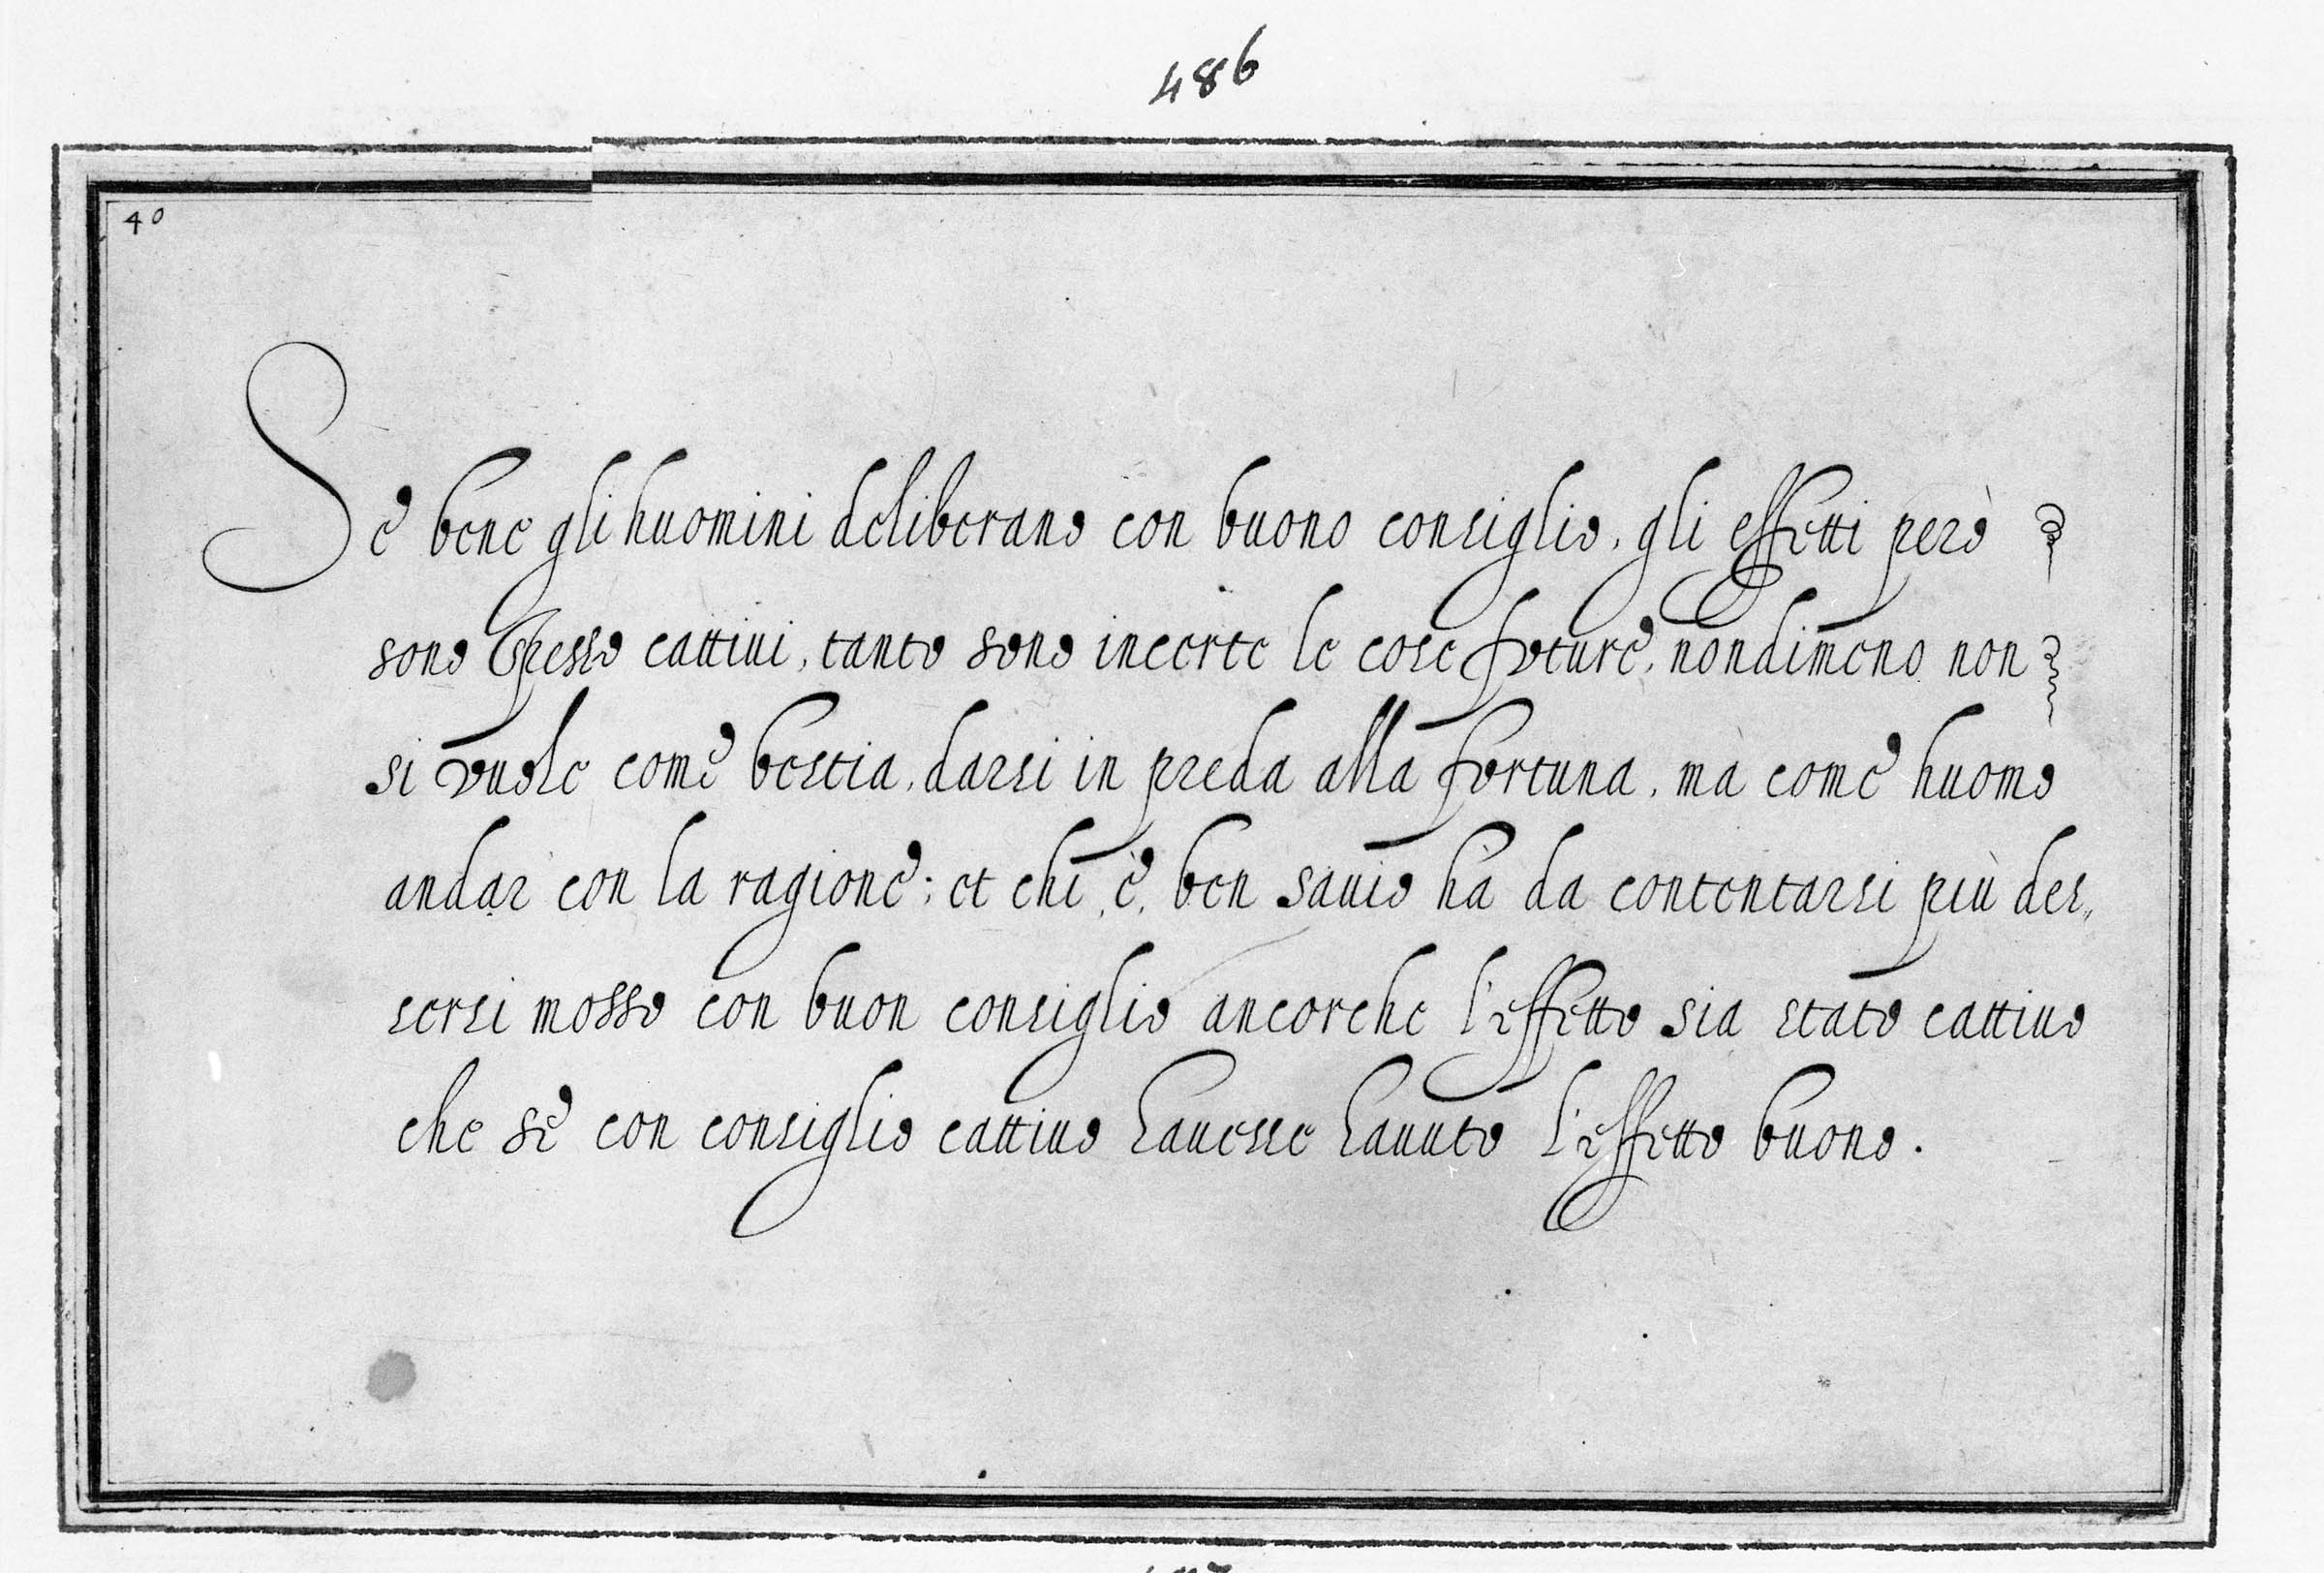 486
40
Se bene gli huomini deliberano con buono consiglio, gli effetti però
sono spesso cattiui, tanto sono incerte le cose future, nondimeno non
si vuole come bestia, darsi in preda alla fortuna, mà come huomo
andar con la ragione; et chi, è, ben sauio hà da contentarsi più des„
sersi mosso con buon consiglio ancorche l'effetto sia stato cattiuo
che se con consiglio cattiuo hauesse hauuto l'effetto buono.